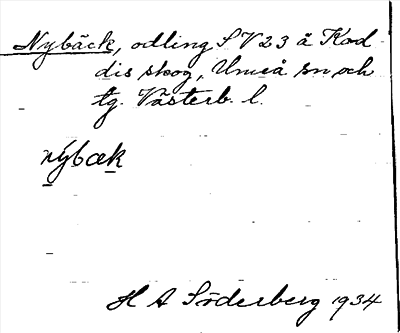 Nybäck, odling SV23 å Kod-
dis skog, Umeå sn och
tg. Västerb. l.
nýbæk
H A Söderberg 1934